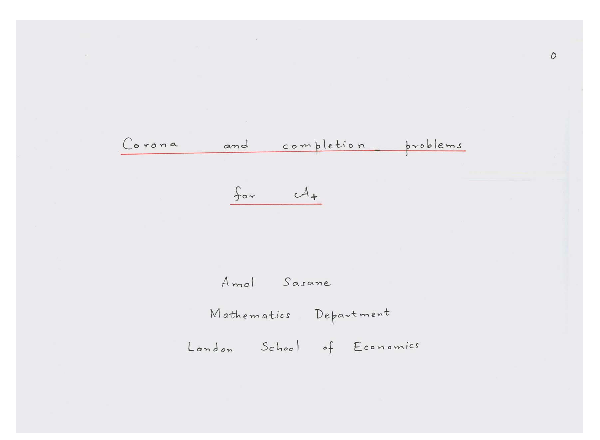 0
Corona and completion problems
for A+
Amol Sasane
Mathematics Department
London School of Economics